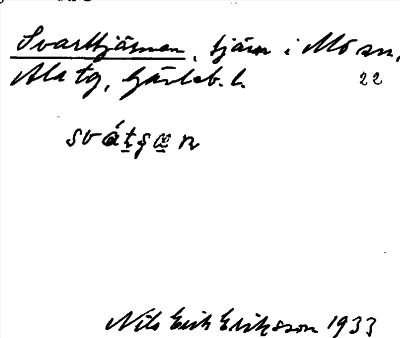 Svarttjärnen, tjärn i Mo sn,
Ala tg, Gävleb. l. 22
svátʂœn
Nils Erik Eriksson 1933